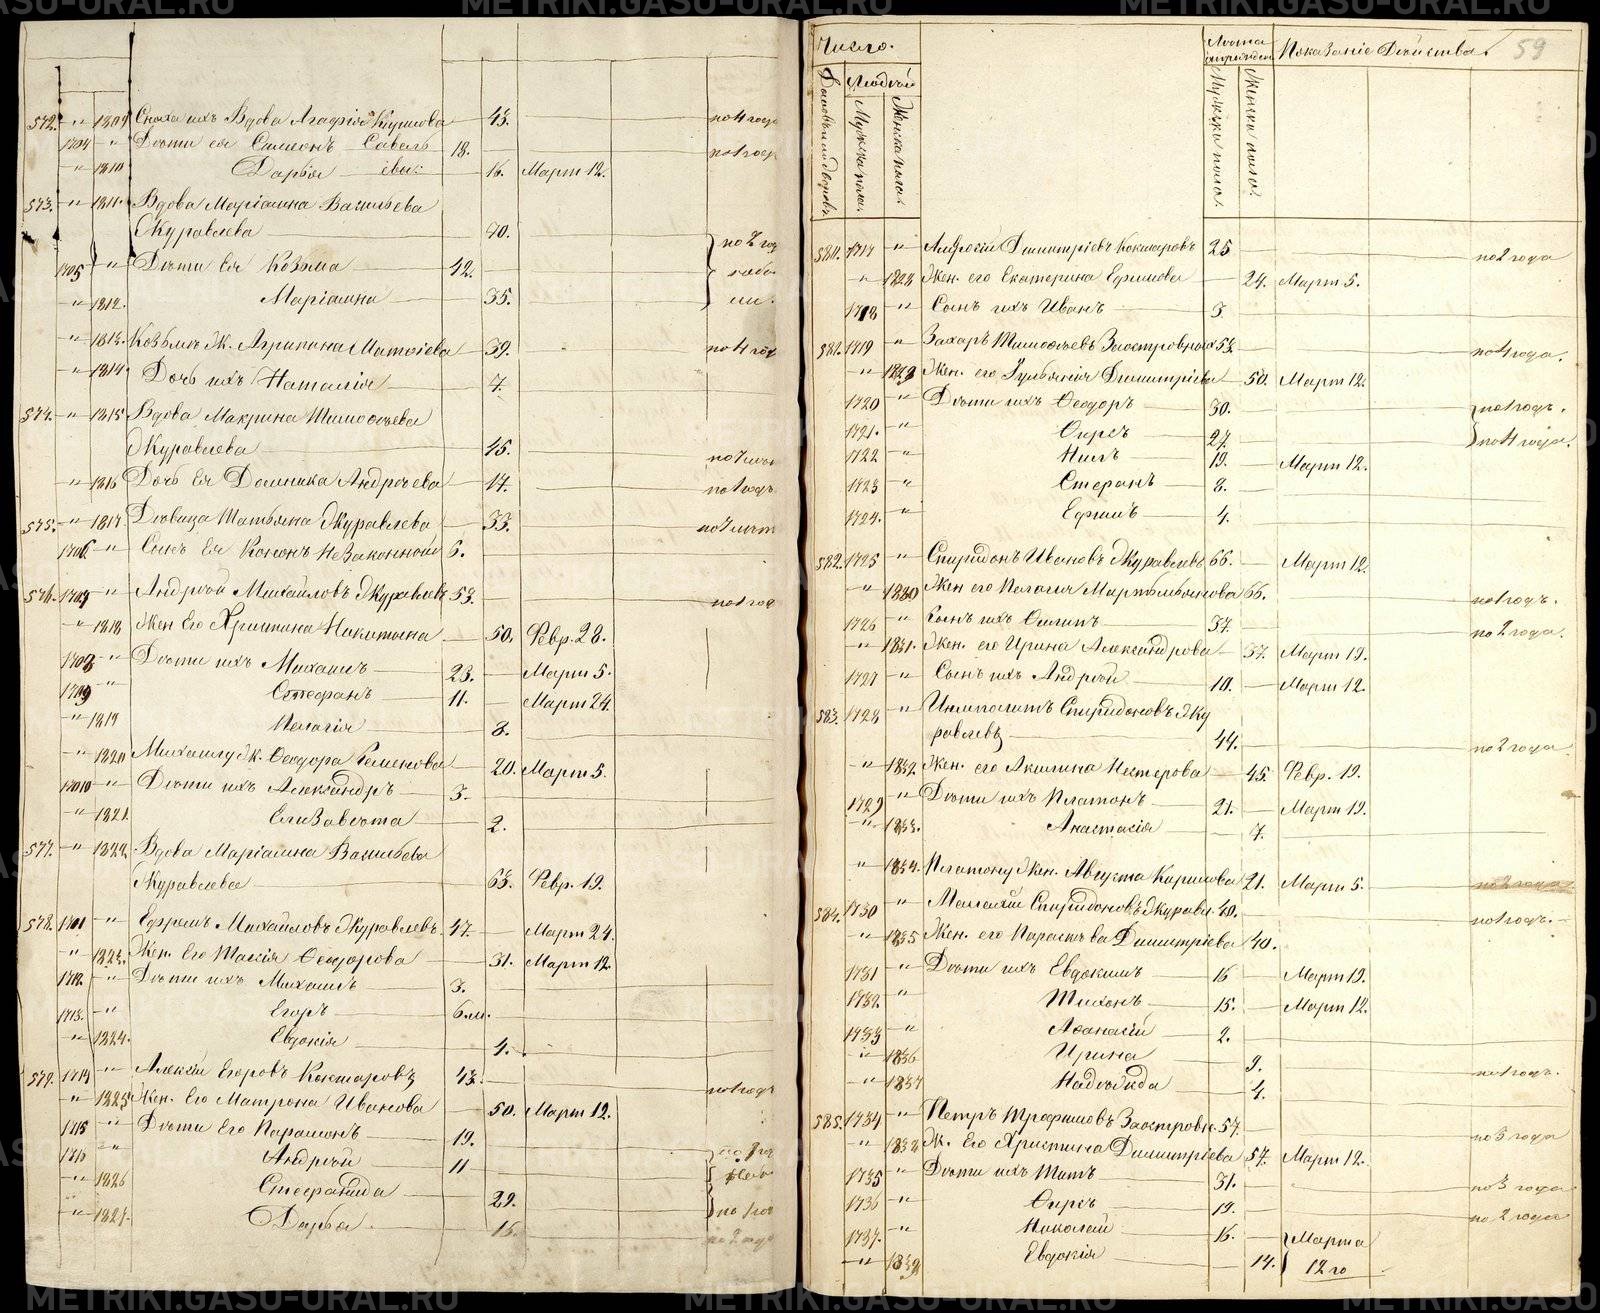 METRIKI.GASU-URAL.RU
572. " 1809 Сноха ихъ Вдова Агафія Кирилова 43. по 4 года
1704 " Дѣти ея Симионъ Савель 18. по 1 году
" 1810 Дарья евы: 16. Март 12.
573. " 1811. Вдова Маріамна Васильева
Журавлева 70. по 2 го
1705 " Дѣти Ея Козьма 42.
" 1812. Маріамна 35.
" 1813. Козьмы Ж. Агрипина Матвіева 39. по 4 год
" 1814 Дочь ихъ Наталія 7.
574. " 1815 Вдова Макрина Тимофѣева
Журавлева 45.
" 1816 Дочь Ея Домника Андреева 17. по 1 годъ
575. " 1817 Дѣвица Татьяна Журавлева 33.
1706 " Сынъ Ея Конон Незаконной 6.
576. 1707 " Андрей Михайловъ Журавлевъ 53. по 1 год
" 1818 Жен Его Христина Никитина 50. Февр. 28.
1708 " Дѣти ихъ Михаилъ 23. Март 5.
1709 " Стефанъ 11. Март 24.
" 1819 Пелагія 8.
" 1820 Михаилу Ж. Ѳеодора Семенова 20. Март 5.
17010 " Дѣти ихъ Александръ 3.
" 1821 Елизавѣта 2.
577. " 1822. Вдова Маріамна Васильева
Журавлева 63. Февр. 19.
578. 1701 " Ефремъ Михайловъ Журавлевъ 47. Март 24.
" 1823. Жен. Его Таисія Ѳеодорова 31. Март 12.
1712. " Дѣти ихъ Михаилъ 3.
1713. " Егоръ 6 м.
" 1824. Евдокія 4.
579. 1714 " Алексѣй Егоровъ Кокшаровъ 43. по 1 годъ
" 1825 Жен. Его Матрона Иванова 50. Март 12.
1715 " Дѣти Его Парамонъ 19.
1716 " Андрей 11
" 1826 Стефанида 22.
" 1827. Дарья 15. по 2 года
Число. Лѣта отрожден Показаніе Дѣйства. 59
Людей
Мужска пола. Женска пола. Мужска пола. Женска пола.
580. 1717 " Андрей Димитріевъ Кокшаровъ 25 по 2 года
" 1828 Жен. его Екатерина Ефимова 24. Март 5.
1718 " Сынъ ихъ Иванъ 3.
581. 1719 " Захаръ Тимофѣевъ Заостровных 53. по 4 года.
" 1829 Жен. его Іульянія Димитріева 50. Март 12.
1720 " Дѣти ихъ Ѳеодоръ 30. по 1 годъ.
1721. " Ѳирсъ 27. по 4 года.
1722 " Нилъ 19. Март 12.
1723 " Стефанъ 8.
1724. " Ефимъ 4.
582. 1725 " Спиридонъ Ивановъ Журавлевъ 66. Март 12.
" 1830 Жен его Пелагія Мартемьянова 66. по 1 годъ.
1726 " Сынъ ихъ Филипъ 37. по 2 года.
" 1831. Жен. его Ирина Александрова 37. Март 19.
1727 " Сынъ ихъ Андрей 10. Март 12.
583. 1728 " Иполитъ Спиридоновъ Жу
равлевъ 44. по 2 года.
" 1832. Жен. его Акилина Нестерова 45. Февр. 19.
1729 " Дѣти ихъ Платонъ 21. Март 19.
" 1833. Анастасія 7.
" 1834. Платону Жен. Августа Карпилова 21. Март 5. по 2 года
584. 1730 " Малахій Спиридоновъ Журавл. 40. по 1 годъ.
" 1835 Жен. его Параскѣва Димитріева 40.
1731 " Дѣти ихъ Евдокимъ 16 Март 19.
1732. " Тихонъ 15. Март 12.
1733 " Аѳанасій 2.
" 1836 Ирина 9. по 1 годъ.
" 1837 Надежда 4.
585. 1734 " Петръ Трофимовъ Заостровн. 57. по 3 года
" 1838 Ж. Его Христина Димитріева 57. Март 12.
1735 " Дѣти ихъ Титъ 31. по 3 года
1736 " Ѳирсъ 19. по 2 года
1737. " Николай 16. Марта
" 1839 Евдокія 14. 12 го
METRIKI.GASU-URAL.RU